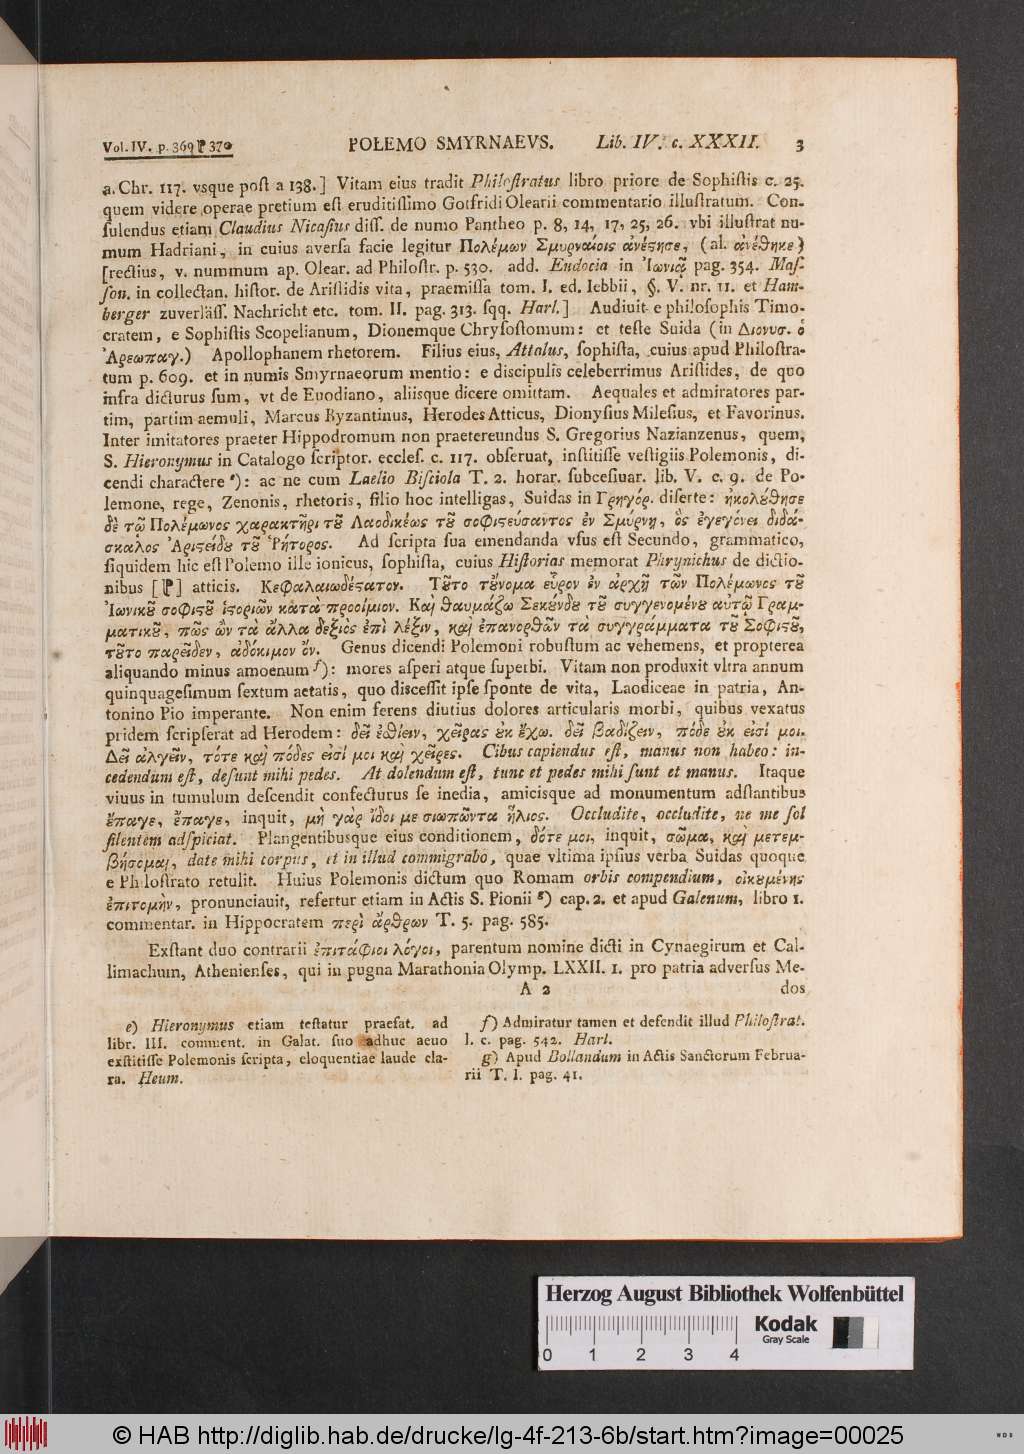 Vol. IV. p. 369 ⁋ 370 POLEMO SMYRNAEVS. Lib. IV. c. XXXII. 3
a. Chr. 117. vsque poſt a 138.] Vitam eius tradit Philoſtratus libro priore de Sophiſtis c. 25.
quem videre operae pretium eſt eruditiſſimo Gotfridi Olearii commentario illuſtratum. Con-
ſulendus etiam Claudius Nicaſius diſſ. de numo Pantheo p. 8, 14, 17, 25, 26. vbi illuſtrat nu-
mum Hadriani, in cuius averſa facie legitur Πολέμων Σμυρναίοις ἀνέϛησε, (al. ἀνέθηκε)
[rectius, v. nummum ap. Olear. ad Philoſtr. p. 530. add. Eudocia in Ἰωνιᾷ pag. 354. Maſ-
ſon. in collectan. hiſtor. de Ariſtidis vita, praemiſſa tom. I. ed. Iebbii, §. V. nr. 11. et Ham-
berger zuverläſſ. Nachricht etc. tom. II. pag. 313. ſqq. Harl.] Audiuit e philoſophis Timo-
cratem, e Sophiſtis Scopelianum, Dionemque Chryſoſtomum: et teſte Suida (in Διονυσ. ὁ
Ἀρεωπαγ.) Apollophanem rhetorem. Filius eius, Attalus, ſophiſta, cuius apud Philoſtra-
tum p. 609. et in numis Smyrnaeorum mentio: e diſcipulis celeberrimus Ariſtides, de quo
infra dicturus ſum, vt de Euodiano, aliisque dicere omittam. Aequales et admiratores par-
tim, partim aemuli, Marcus Byzantinus, Herodes Atticus, Dionyſius Mileſius, et Favorinus.
Inter imitatores praeter Hippodromum non praetereundus S. Gregorius Nazianzenus, quem,
S. Hieronymus in Catalogo ſcriptor. eccleſ. c. 117. obſeruat, inſtitiſſe veſtigiis Polemonis, di-
cendi charactere e): ac ne cum Laelio Biſciola T. 2. horar. ſubceſiuar. lib. V. c. 9. de Po-
lemone, rege, Zenonis, rhetoris, filio hoc intelligas, Suidas in Γρηγόρ. diſerte: ἠκολούθησε
δὲ τῷ Πολέμωνος χαρακτῆρι τȣ͂ Λαοδικέως τȣ͂ σοφιϛεύσαντος ἐν Σμύρνῃ, ὃς ἐγεγόνει διδά-
σκαλος Ἀριϛείδȣ τȣ͂ Ῥήτορος. Ad ſcripta ſua emendanda vſus eſt Secundo, grammatico,
ſiquidem hic eſt Polemo ille ionicus, ſophiſta, cuius Hiſtorias memorat Phrynichus de dictio-
nibus [⁋] atticis. Κεφαλαιωδέϛατον. Τȣ͂το τȣ́νομα εὗρον ἐν ἀρχῇ τῶν Πολέμωνος τȣ͂
Ἰωνικȣ͂ σοφιϛȣ͂ ἱϛοριῶν κατὰ προοίμιον. Καὶ θαυμάζω Σεκȣ́νδȣ τȣ͂ συγγενομένȣ αὐτῷ Γραμ-
ματικȣ͂, πῶς ὢν τὰ ἄλλα δεξιὸς ἐπὶ λέξιν, καὶ ἐπανορθῶν τὰ συγγράμματα τȣ͂ Σοφιϛȣ͂,
τȣ͂το παρεῖδεν, ἀδόκιμον ὄν. Genus dicendi Polemoni robuſtum ac vehemens, et propterea
aliquando minus amoenum f): mores aſperi atque ſuperbi. Vitam non produxit vltra annum
quinquageſimum ſextum aetatis, quo diſceſſit ipſe ſponte de vita, Laodiceae in patria, An-
tonino Pio imperante. Non enim ferens diutius dolores articularis morbi, quibus vexatus
pridem ſcripſerat ad Herodem: δεῖ ἐσθίειν, χεῖρας ȣκ ἔχω. δεῖ βαδίζειν, πόδε ȣκ εἰσί μοι.
Δεῖ ἀλγεῖν, τότε καὶ πόδες εἰσί μοι καὶ χεῖρες. Cibus capiendus eſt, manus non habeo: in-
cedendum eſt, deſunt mihi pedes. At dolendum eſt, tunc et pedes mihi ſunt et manus. Itaque
viuus in tumulum deſcendit confecturus ſe inedia, amicisque ad monumentum adſtantibus
ἔπαγε, ἔπαγε, inquit, μὴ γὰρ ἴδοι με σιωπῶντα ἥλιος. Occludite, occludite, ne me ſol
ſilentem adſpiciat. Plangentibusque eius conditionem, δότε μοι, inquit, σῶμα, καὶ μετεμ-
βήσομαι, date mihi corpus, et in illud commigrabo, quae vltima ipſius verba Suidas quoque
e Philoſtrato retulit. Huius Polemonis dictum quo Romam orbis compendium, οἰκȣμένης
ἐπιτομὴν, pronunciauit, refertur etiam in Actis S. Pionii g) cap. 2. et apud Galenum, libro 1.
commentar. in Hippocratem περὶ ἄρθρων T. 5. pag. 585.
Exſtant duo contrarii ἐπιτάφιοι λόγοι, parentum nomine dicti in Cynaegirum et Cal-
limachum, Athenienſes, qui in pugna Marathonia Olymp. LXXII. 1. pro patria adverſus Me-
A 2 dos
e) Hieronymus etiam teſtatur praefat. ad
libr. III. comment. in Galat. ſuo adhuc aeuo
exſtitiſſe Polemonis ſcripta, eloquentiae laude cla-
ra. Heum.
f) Admiratur tamen et defendit illud Philoſtrat.
l. c. pag. 542. Harl.
g) Apud Bollandum in Actis Sanctorum Februa-
rii T. I. pag. 41.
Herzog August Bibliothek Wolfenbüttel
Kodak
Gray Scale
0 1 2 3 4
© HAB http://diglib.hab.de/drucke/lg-4f-213-6b/start.htm?image=00025